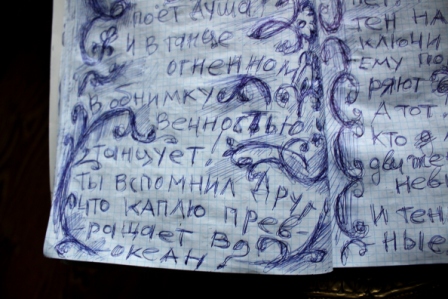 поёт душа
и в танце
огненном
в обнимку с
вечностью
танцует.
ты вспомнил друг
что каплю прев-
ращает в
океан?
тен на
ключи
ему по
ряют
А тот
кто в
движе
неви
и тен
ные